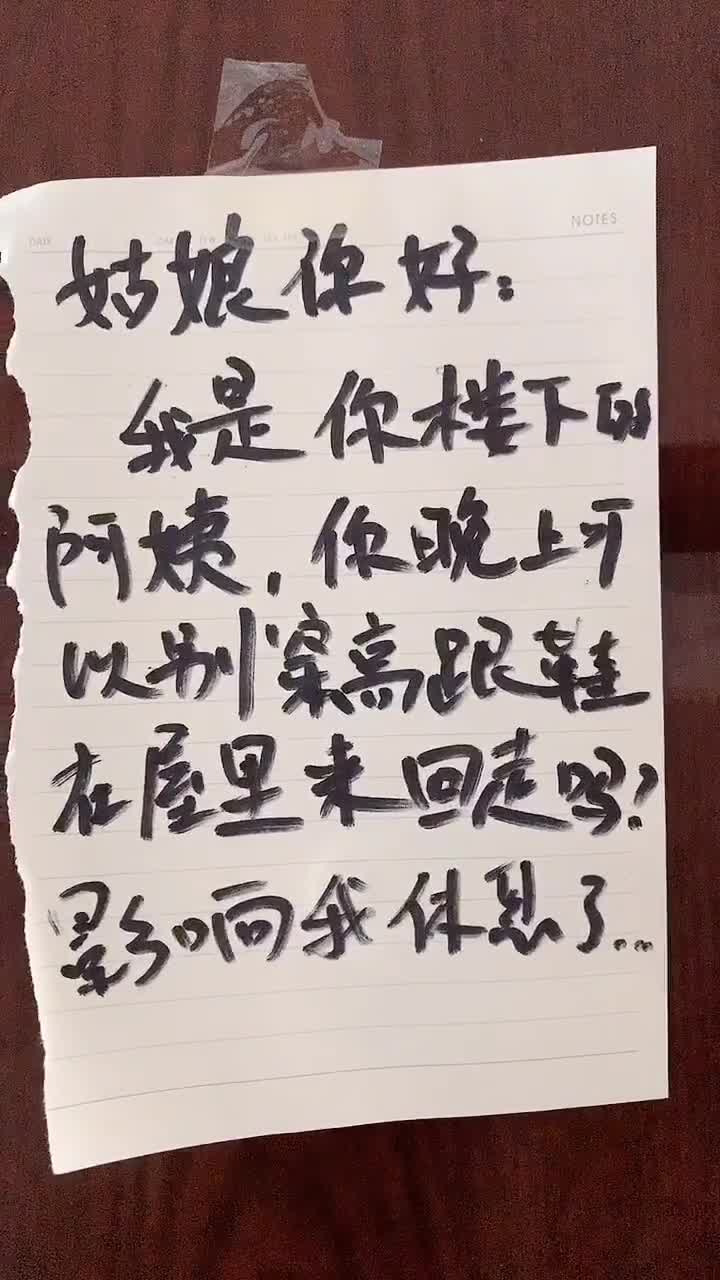 DATE
NOTES
姑娘你好：
我是你楼下的
阿姨，你晚上可
以别穿高跟鞋
在屋里来回走吗？
影响我休息了...